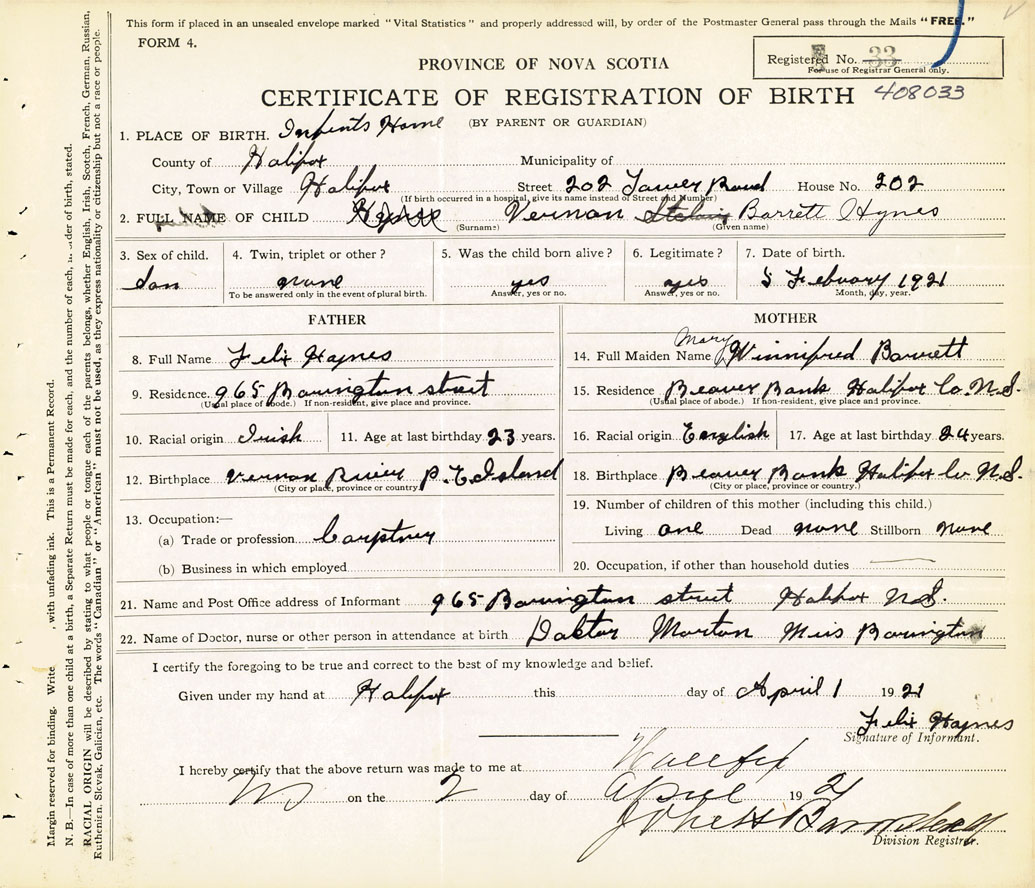 This form if placed in an unsealed envelope marked "Vital Statistics" and properly addressed will, by order of the Postmaster General pass through the Mails "FREE."
FORM 4.
Registered No. 33
For use of Registrar General only.
PROVINCE OF NOVA SCOTIA
CERTIFICATE OF REGISTRATION OF BIRTH 408033
(BY PARENT OR GUARDIAN)
1. PLACE OF BIRTH. Infents Home
County of Halifax Municipality of
City, Town or Village Halifax Street 202 Tower Road House No. 202
(If birth occurred in a hospital, give its name instead of Street and Number)
2. FULL NAME OF CHILD Vernon Barrett Hynes
(Surname) (Given name)
3. Sex of child. 4. Twin, triplet or other? 5. Was the child born alive? 6. Legitimate? 7. Date of birth.
Son none yes yes 5 Febuary 1921
To be answered only in the event of plural birth. Answer, yes or no. Answer, yes or no. Month, day, year.
FATHER
8. Full Name Felix Haynes
9. Residence. 965 Barington street
(Usual place of abode.) If non-resident, give place and province.
10. Racial origin Irish 11. Age at last birthday 23 years.
12. Birthplace Vernon River P.E Island
(City or place, province or country.)
13. Occupation:—
(a) Trade or profession Carptney
(b) Business in which employed
MOTHER
14. Full Maiden Name Mary Winnifred Barrett
15. Residence Beaver Bank Halifax Co. N.S.
(Usual place of abode.) If non-resident, give place and province.
16. Racial origin English 17. Age at last birthday 24 years.
18. Birthplace Beaver Bank Halifax Co N.S.
(City or place, province or country.)
19. Number of children of this mother (including this child.)
Living one Dead none Stillborn none
20. Occupation, if other than household duties
21. Name and Post Office address of Informant 965 Barington street Halifax N.S.
22. Name of Doctor, nurse or other person in attendance at birth Doktor Morton Miss Barington
I certify the foregoing to be true and correct to the best of my knowledge and belief.
Given under my hand at Halifax this day of April 1 1921
Felix Haynes
Signature of Informant.
I hereby certify that the above return was made to me at Halifax
NS on the 2 day of April 1921
Division Registrar.
Margin reserved for binding. Write , with unfading ink. This is a Permanent Record.
N. B.—In case of more than one child at a birth, a Separate Return must be made for each, and the number of each, in order of birth, stated.
RACIAL ORIGIN will be described by stating to what people or tongue each of the parents belongs, whether English, Irish, Scotch, French, German, Russian,
Ruthenian, Slovak, Galician, etc. The words "Canadian" or "American" must not be used, as they express nationality or citizenship but not a race or people.